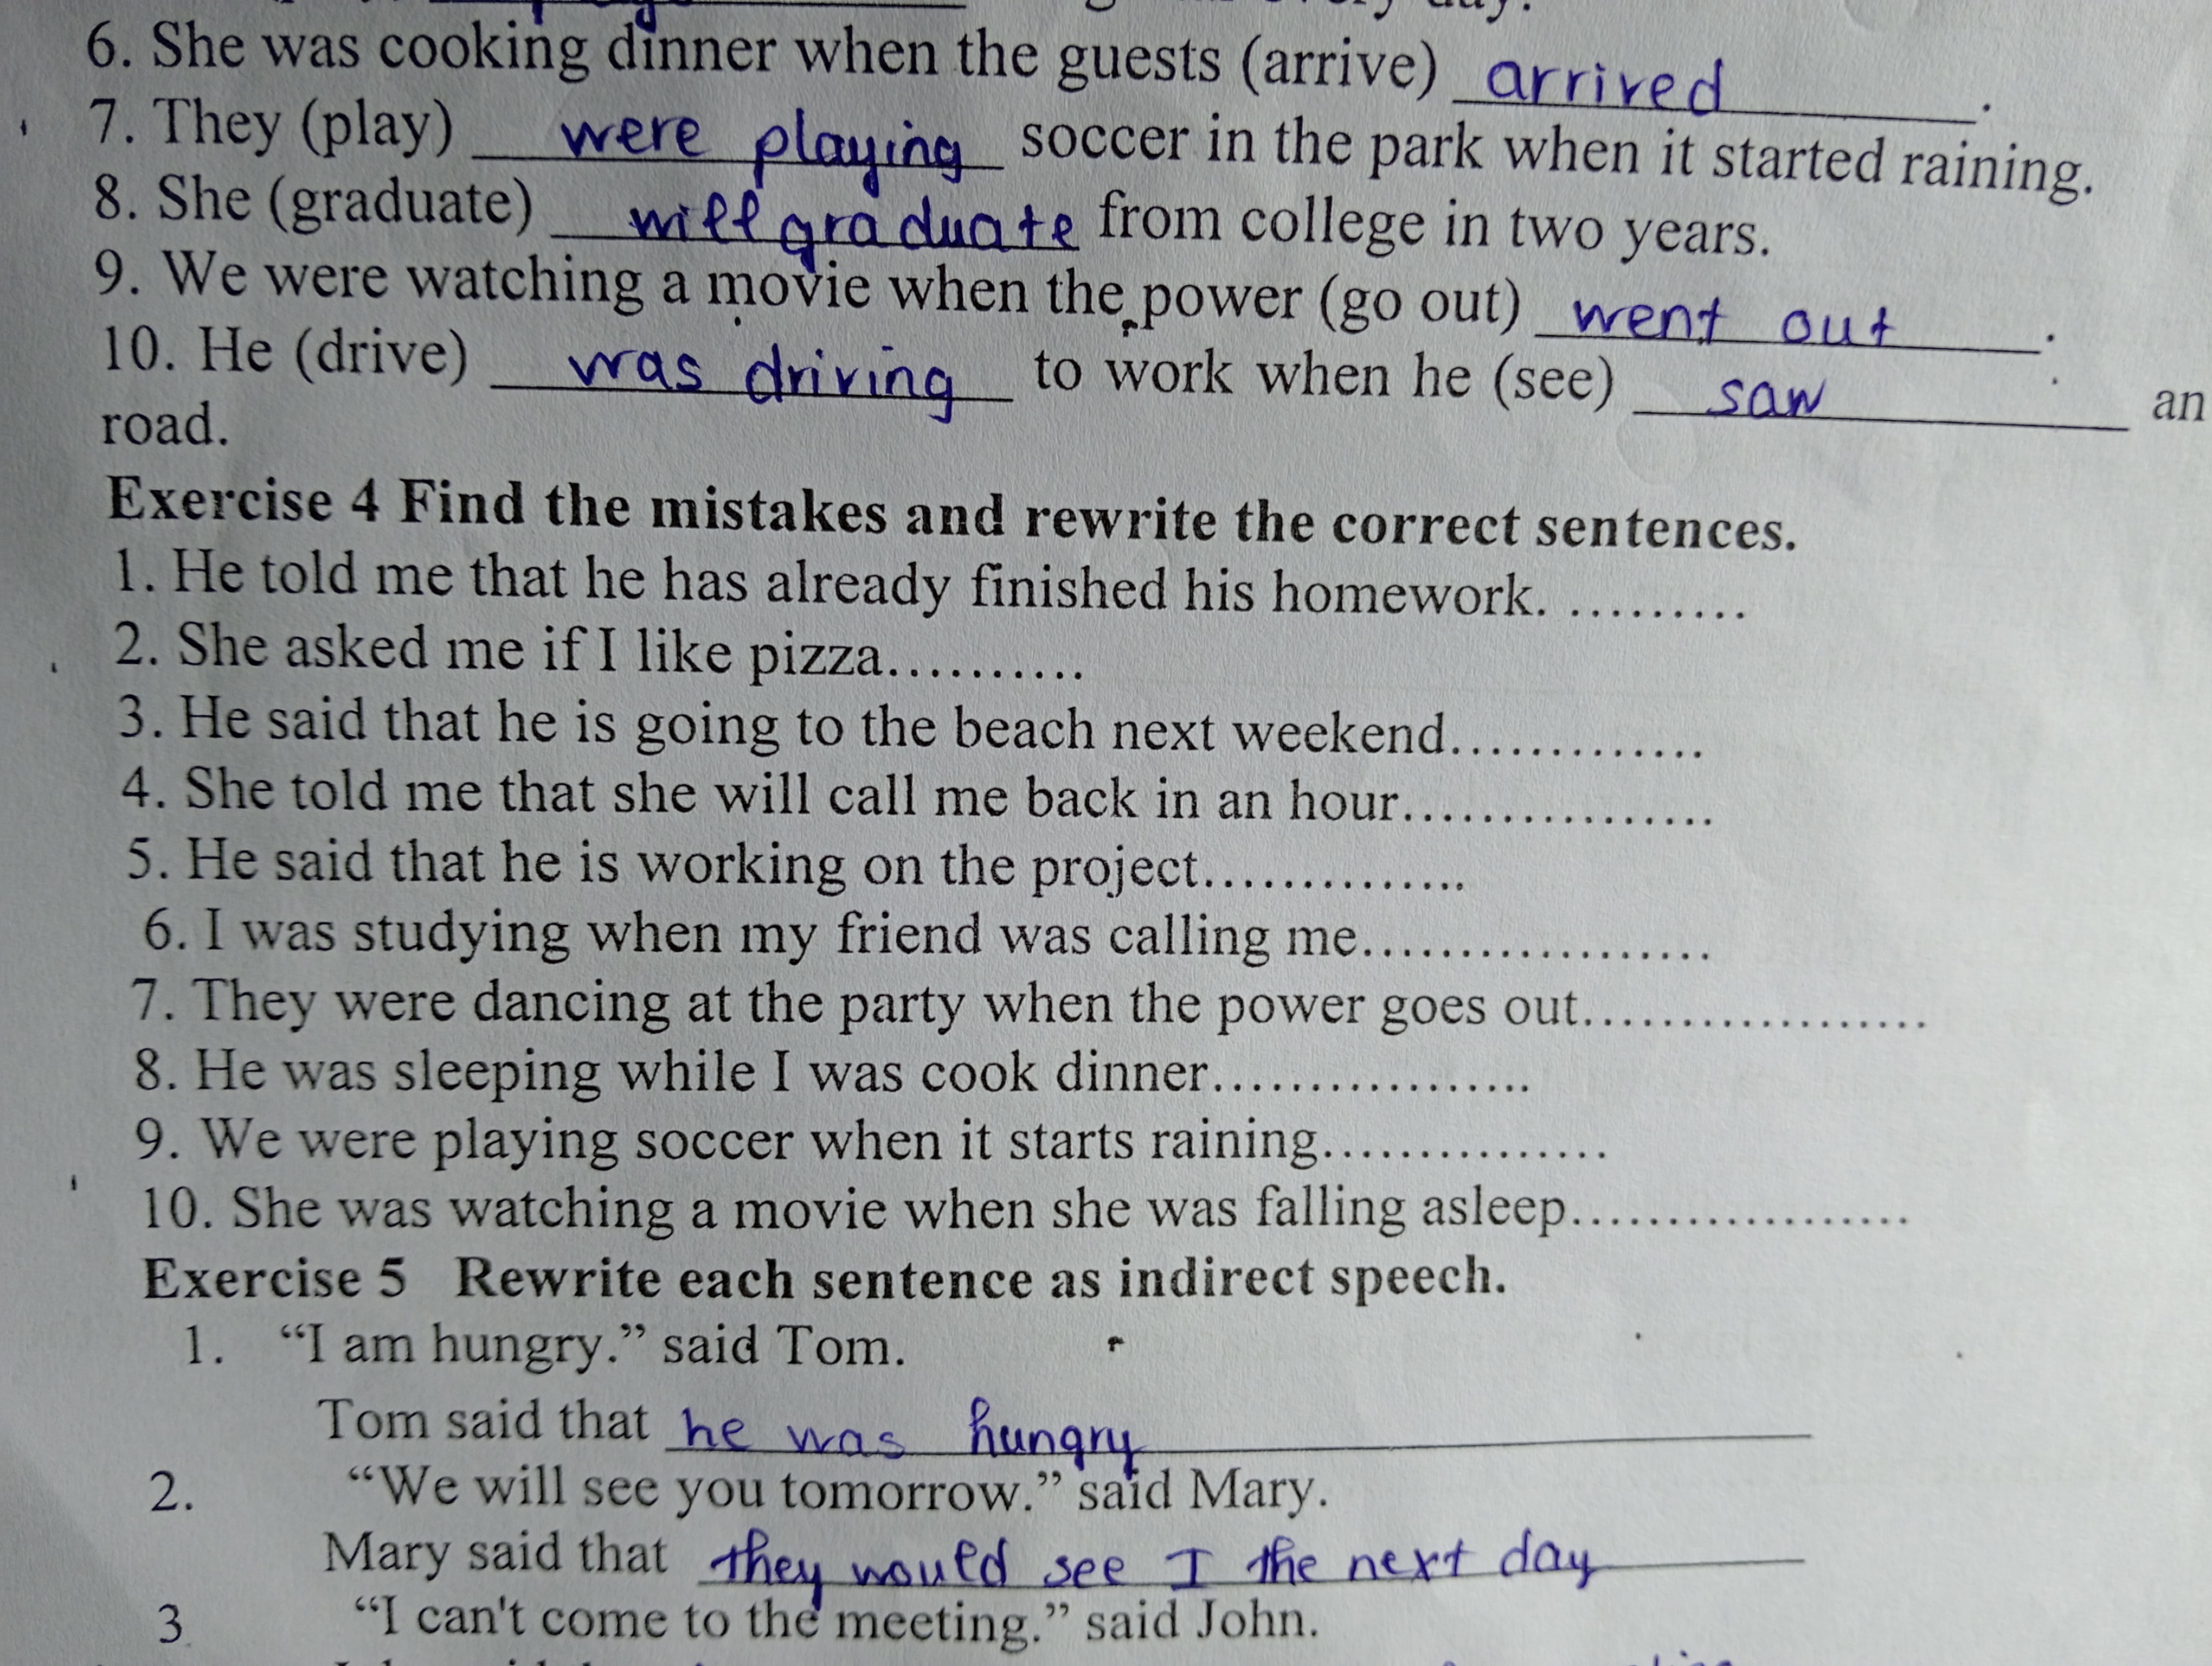 6. She was cooking dinner when the guests (arrive) arrived.
7. They (play) were playing soccer in the park when it started raining.
8. She (graduate) will graduate from college in two years.
9. We were watching a movie when the power (go out) went out.
10. He (drive) was driving to work when he (see) saw an
road.
Exercise 4 Find the mistakes and rewrite the correct sentences.
1. He told me that he has already finished his homework. .........
2. She asked me if I like pizza..........
3. He said that he is going to the beach next weekend.............
4. She told me that she will call me back in an hour................
5. He said that he is working on the project..............
6. I was studying when my friend was calling me..................
7. They were dancing at the party when the power goes out..................
8. He was sleeping while I was cook dinner.................
9. We were playing soccer when it starts raining...............
10. She was watching a movie when she was falling asleep..................
Exercise 5 Rewrite each sentence as indirect speech.
1. “I am hungry.” said Tom.
Tom said that he was hungry
2. “We will see you tomorrow.” said Mary.
Mary said that they would see I the next day
3 “I can't come to the meeting.” said John.